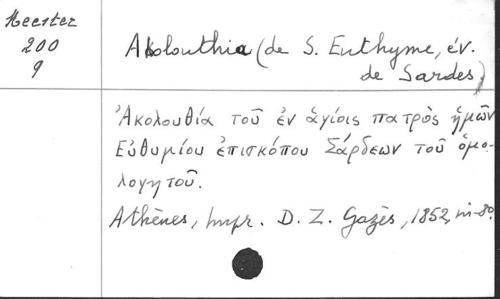 Meester
200
9
Akolouthia (de S. Euthyme, év.
de Sardes)
Ἀκολουθία τοῦ ἐν ἁγίοις πατρὸς ἡμῶν
Εὐθυμίου ἐπισκόπου Σάρδεων τοῦ ὁμο-
λογητοῦ.
Athènes, Impr. D. Z. Gazès, 1852, in-8º.